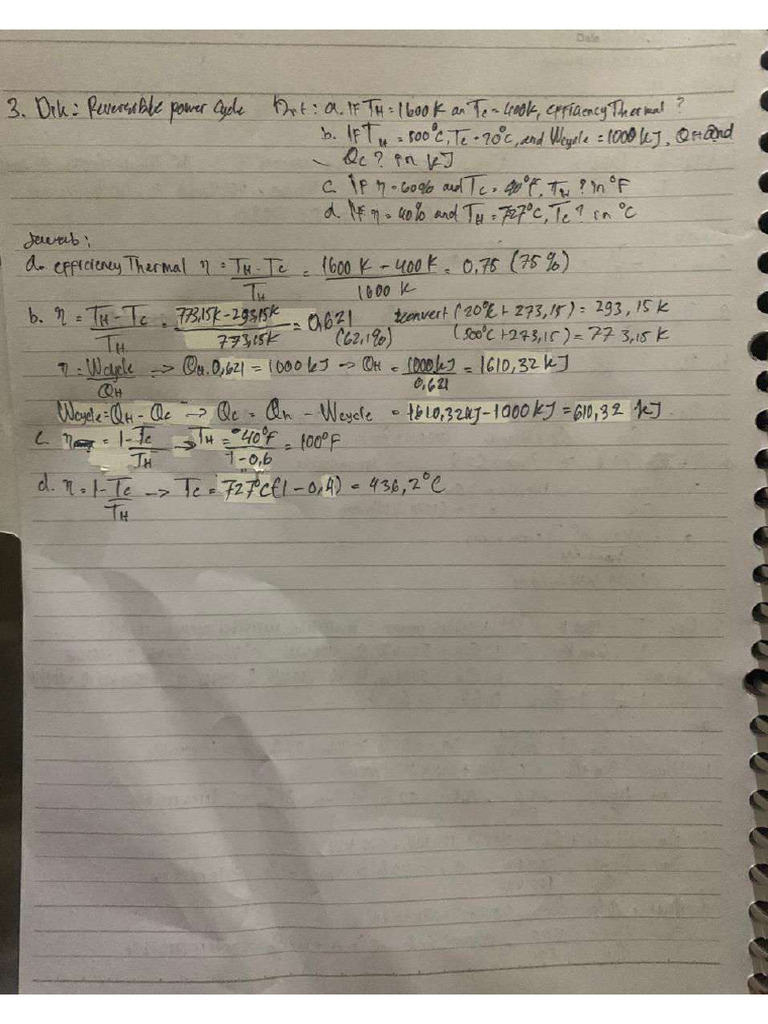 Date
3. Dik: Reversible power cycle Dit: a. IF TH = 1600 K an Tc = 400K, efficiency Thermal ?
b. IF TH = 500°C, Tc = 20°C, and Wcycle = 1000 kJ, QH and
Qc ? in kJ
c. IF η = 60% and Tc = 40°F, TH ? in °F
d. IF η = 40% and TH = 727°C, Tc ? in °C
Jawab:
a. efficiency Thermal η = TH - Tc / TH = 1600 K - 400 K / 1600 K = 0,75 (75%)
b. η = TH - Tc / TH = 773,15K - 293,15K / 773,15K = 0,621 (62,1%) convert (20°C + 273,15) = 293,15 K
(500°C + 273,15) = 773,15 K
η = Wcycle / QH -> QH . 0,621 = 1000 kJ -> QH = 1000 kJ / 0,621 = 1610,32 kJ
Wcycle = QH - Qc -> Qc = Qh - Wcycle = 1610,32 kJ - 1000 kJ = 610,32 kJ
c. η = 1 - Tc / TH -> TH = 40°F / 1 - 0,6 = 100°F
d. η = 1 - Tc / TH -> Tc = 727°C (1 - 0,4) = 436,2°C